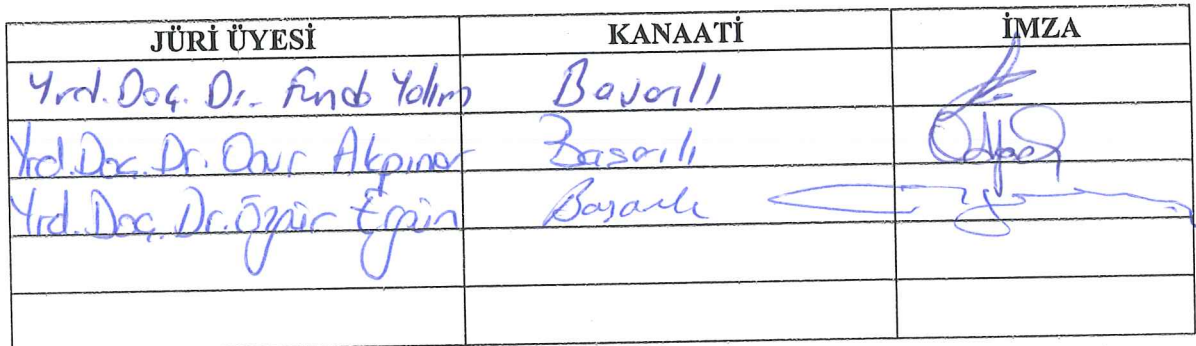 JÜRİ ÜYESİ KANAATİ İMZA
Yrd. Doç. Dr. Funda Yalım Başarılı
Yrd. Doç. Dr. Onur Akpınar Başarılı
Yrd. Doç. Dr. Özgür Ergün Başarılı